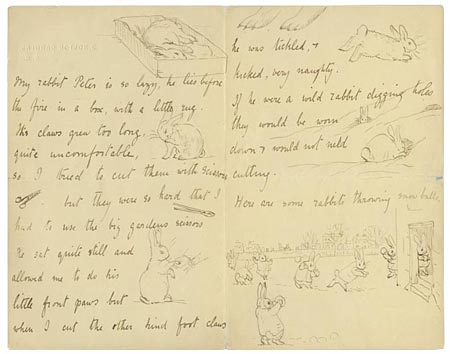 My rabbit Peter is so lazy, he lies before
the fire in a box, with a little rug.
His claws grew too long,
quite uncomfortable,
so I tried to cut them with scissors
but they were so hard that I
had to use the big garden scissors
He sat quite still and
allowed me to do his
little front paws but
when I cut the other hind foot claws
he was tickled, &
kicked, very naughty.
If he were a wild rabbit digging holes
they would be worn
down & would not need
cutting.
Here are some rabbits throwing snow balls.